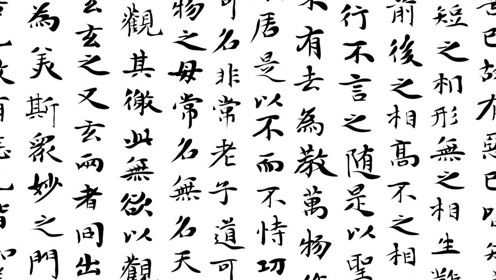 已故有惡已
短之相形無之相生
前後之相高不之相
行不言之随是以聖
有去為教萬物
居是以不而不恃功
可名非常老子道可
物之母常名無名天
觀其徼此無欲以觀
玄之又玄兩者同出
為美斯衆妙之門